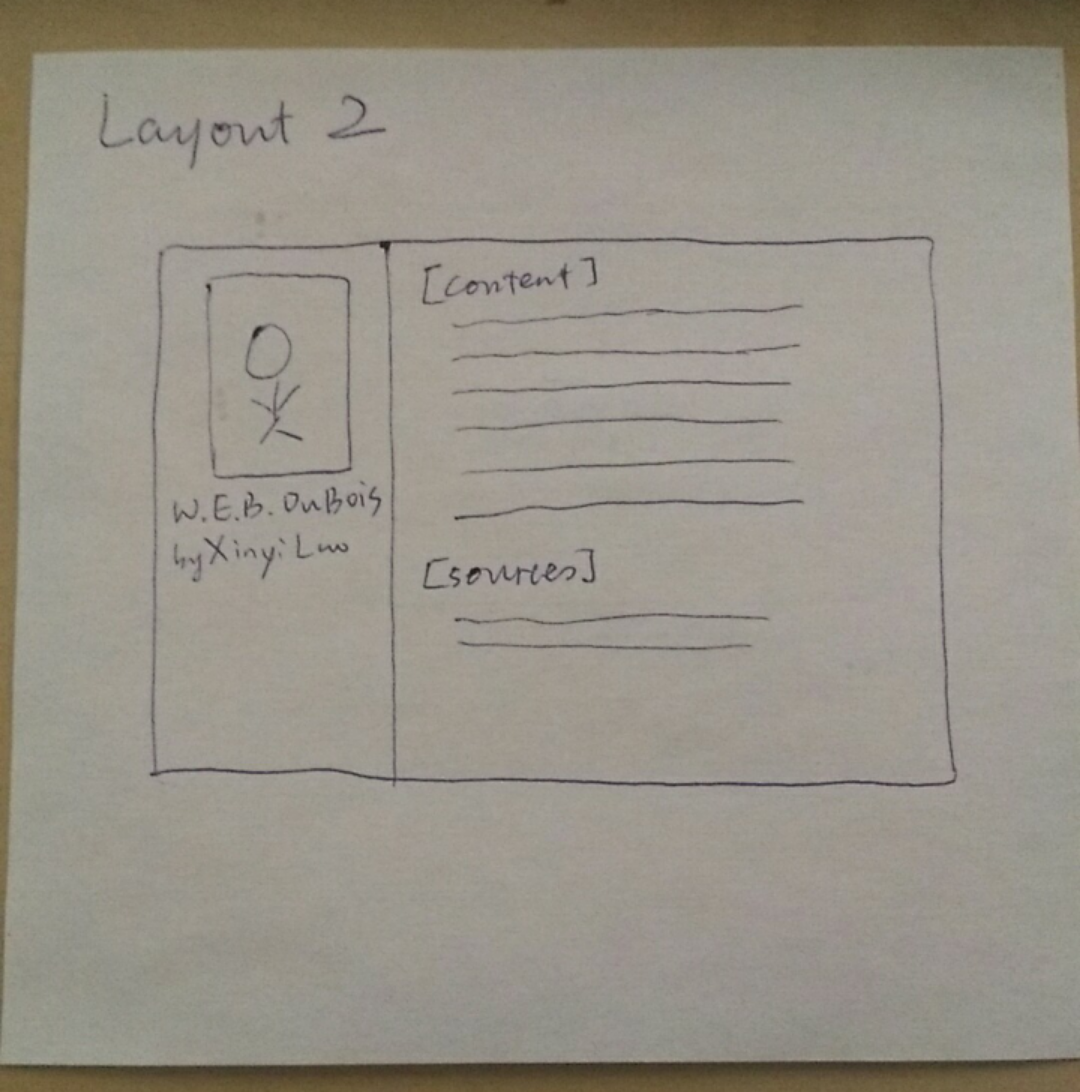 Layout 2
W.E.B. DuBois
by Xinyi Luo
[content]
[sources]